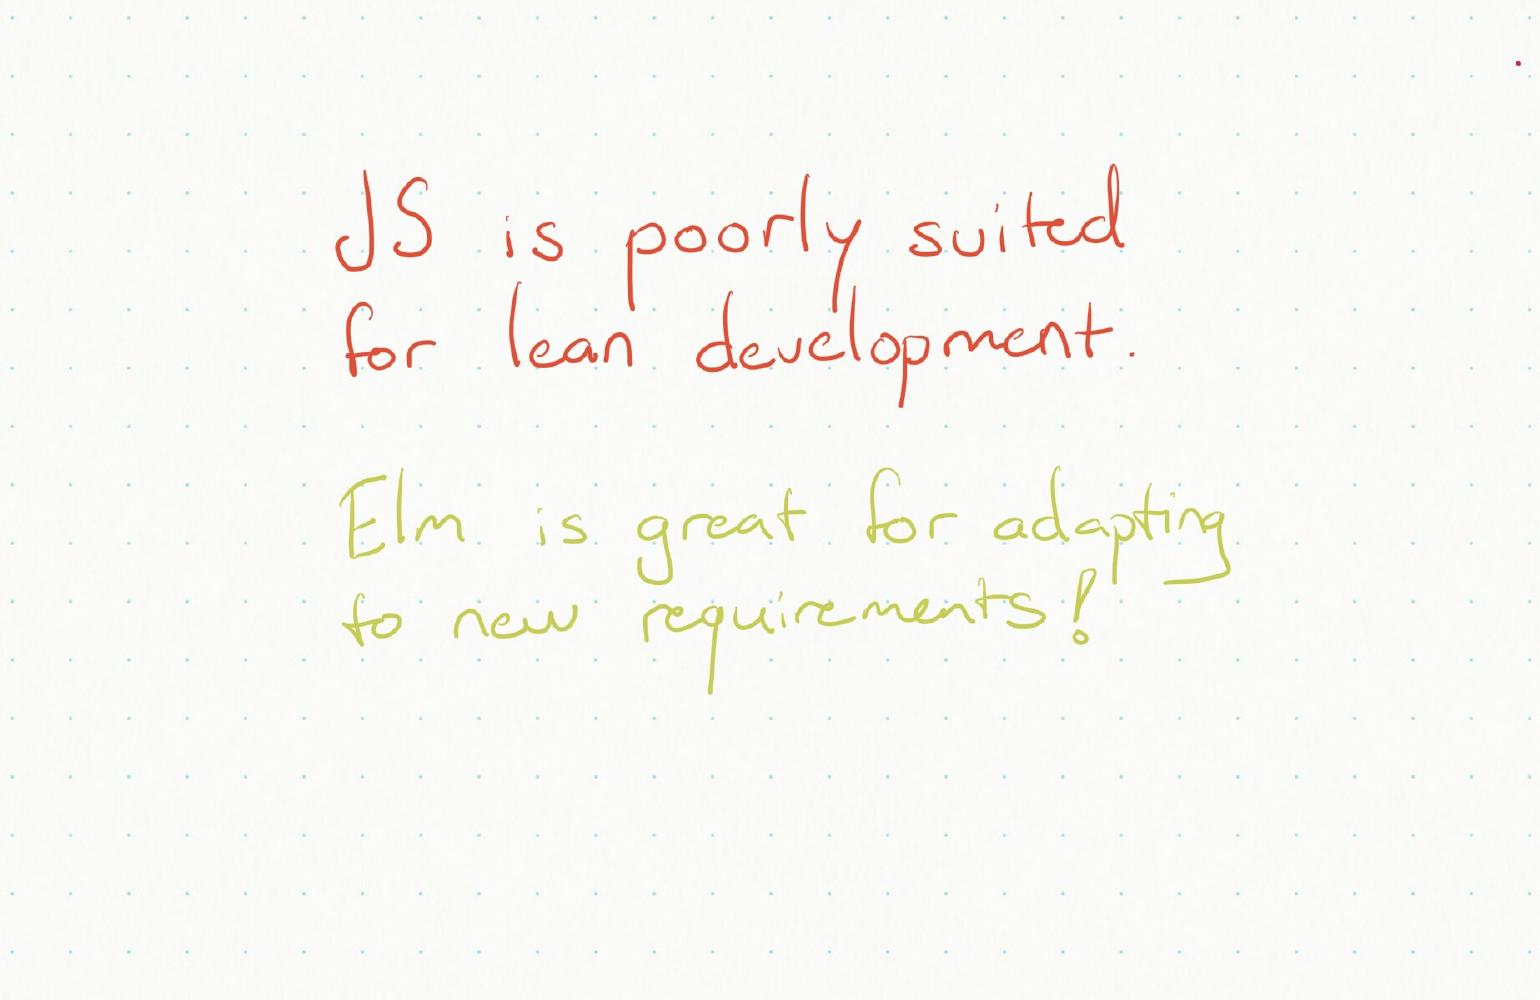 JS is poorly suited
for lean development.
Elm is great for adapting
to new requirements!